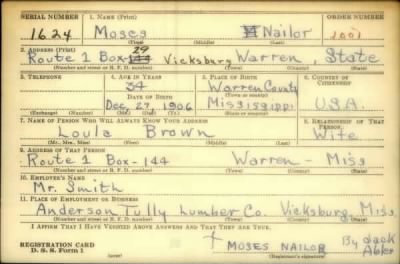 SERIAL NUMBER 1. NAME (Print) ORDER NUMBER
1624 Moses Nailor 1001
(First) (Middle) (Last)
2. ADDRESS (Print)
29
Route 1 Box-144 Vicksburg Warren, State
(Number and street or R. F. D. number) (Town) (County) (State)
3. TELEPHONE 4. AGE IN YEARS 5. PLACE OF BIRTH 6. COUNTRY OF CITIZENSHIP
34 Warren County
DATE OF BIRTH (Town or county)
Dec. 27, 1906 Mississippi U.S.A.
(Exchange) (Number) (Mo.) (Day) (Yr.) (State or country)
7. NAME OF PERSON WHO WILL ALWAYS KNOW YOUR ADDRESS 8. RELATIONSHIP OF THAT PERSON
Loula Brown Wife
(Mr., Mrs., Miss) (First) (Middle) (Last)
9. ADDRESS OF THAT PERSON
Route 1 Box-144 Warren - Miss
(Number and street or R. F. D. number) (Town) (County) (State)
10. EMPLOYER'S NAME
Mr. Smith
11. PLACE OF EMPLOYMENT OR BUSINESS
Anderson Tully Lumber Co. Vicksburg, Miss
(Number and street or R. F. D. number) (Town) (County) (State)
I AFFIRM THAT I HAVE VERIFIED ABOVE ANSWERS AND THAT THEY ARE TRUE.
REGISTRATION CARD
D. S. S. Form 1
MOSES NAILOR By Jack
(Registrant's signature)